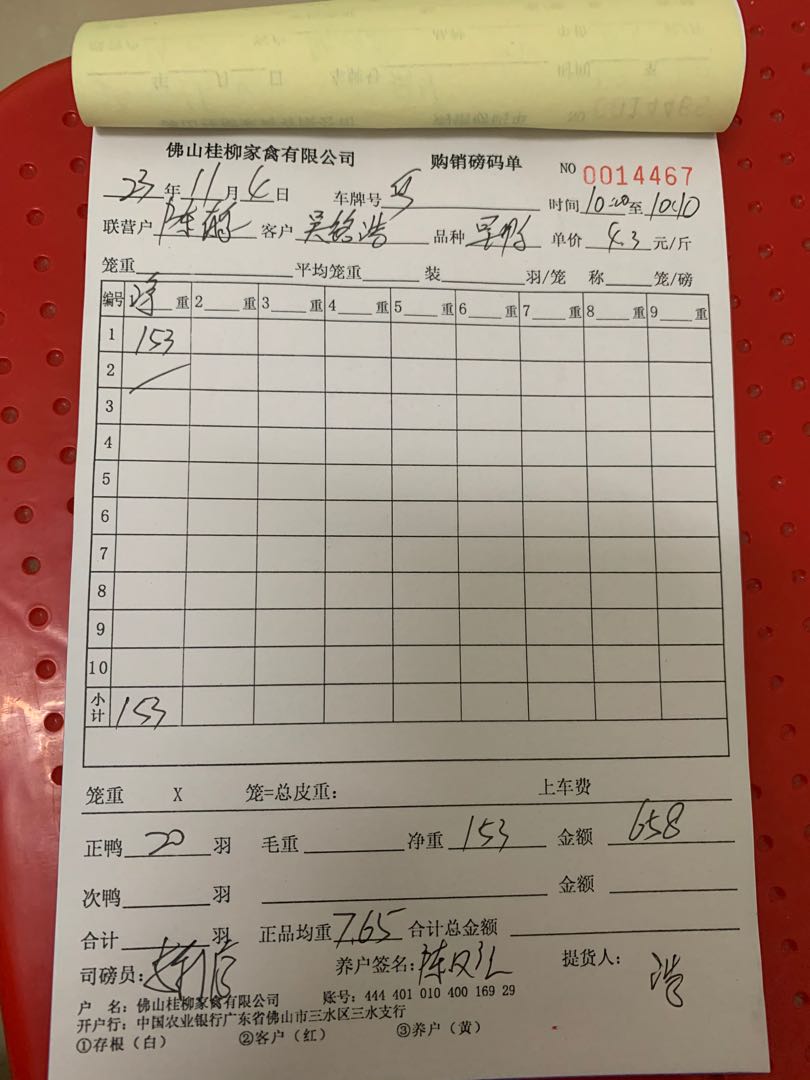 佛山桂柳家禽有限公司 购销磅码单 NO 0014467
23年11月4日 车牌号 时间10:00至10:10
联营户陈 客户吴铭浩 品种 单价4.3元/斤
笼重 平均笼重 装 羽/笼 称 笼/磅
编号 净重 2 重 3 重 4 重 5 重 6 重 7 重 8 重 9 重
1 153
2
3
4
5
6
7
8
9
10
小计 153
笼重 X 笼=总皮重: 上车费
正鸭20羽 毛重 净重153 金额658
次鸭 羽 金额
合计 羽 正品均重7.65 合计总金额
司磅员: 养户签名:陈 提货人: 浩
户 名: 佛山桂柳家禽有限公司 账号: 444 401 010 400 169 29
开户行: 中国农业银行广东省佛山市三水区三水支行
①存根(白) ②客户(红) ③养户(黄)